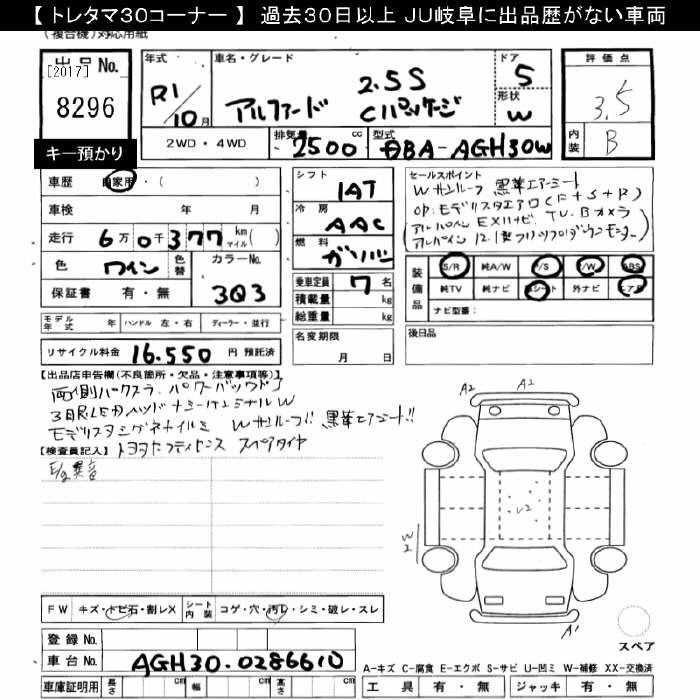 【 トレタマ30コーナー 】 過去30日以上 JU岐阜に出品歴がない車両
(複合機)対応用紙
出品No.
[2017]
8296
キー預かり
年式
R1/10月
車名・グレード
2.5S
アルファード Cパッケージ
ドア
5
形状
W
評価点
3.5
内装
B
2WD・4WD
排気量
2500 cc
型式
DBA-AGH30W
車歴 自家用・( )
車検 年 月
走行 6万0千377 km マイル( )
色 ワイン
色替
カラーNo. 3Q3
保証書 有・無
モデル年式 年
ハンドル 左・右
ディーラー・並行
リサイクル料金 16.550 円 預託済
シフト
1AT
冷房
AAC
燃料
ガソリン
乗車定員 7 名
積載量 kg
総重量 kg
名変期限
月 日
セールスポイント
Wサンルーフ 黒革エアーシート
OP:モデリスタエアロ(F+S+R)
アルパイン EXナビ TV Bカメラ
装備品
S/R 純A/W P/S P/W ABS
純TV 純ナビ 革シート 外ナビ エアB
ナビ型番:
後日品
【出品店申告欄(不良箇所・欠品・注意事項等)】
両側パワスラ パワーバックドア
3眼LEDヘッド
モデリスタシグネイチャー Wサンルーフ!! 黒革エアーシート!!
トヨタセーフティセンス スペアタイヤ
【検査員記入】
E/g異音
A2 A2
U2
W2
A1
スペア
FW キズ・トビ石・割レX
シート内装 コゲ・穴・汚レ・シミ・破レ・スレ
登録 No.
車台 No. AGH30-0286610
車庫証明用 長さ cm 幅 cm 高さ cm
A-キズ C-腐食 E-エクボ S-サビ U-凹ミ W-補修 XX-交換済
工具 有・無 ジャッキ 有・無